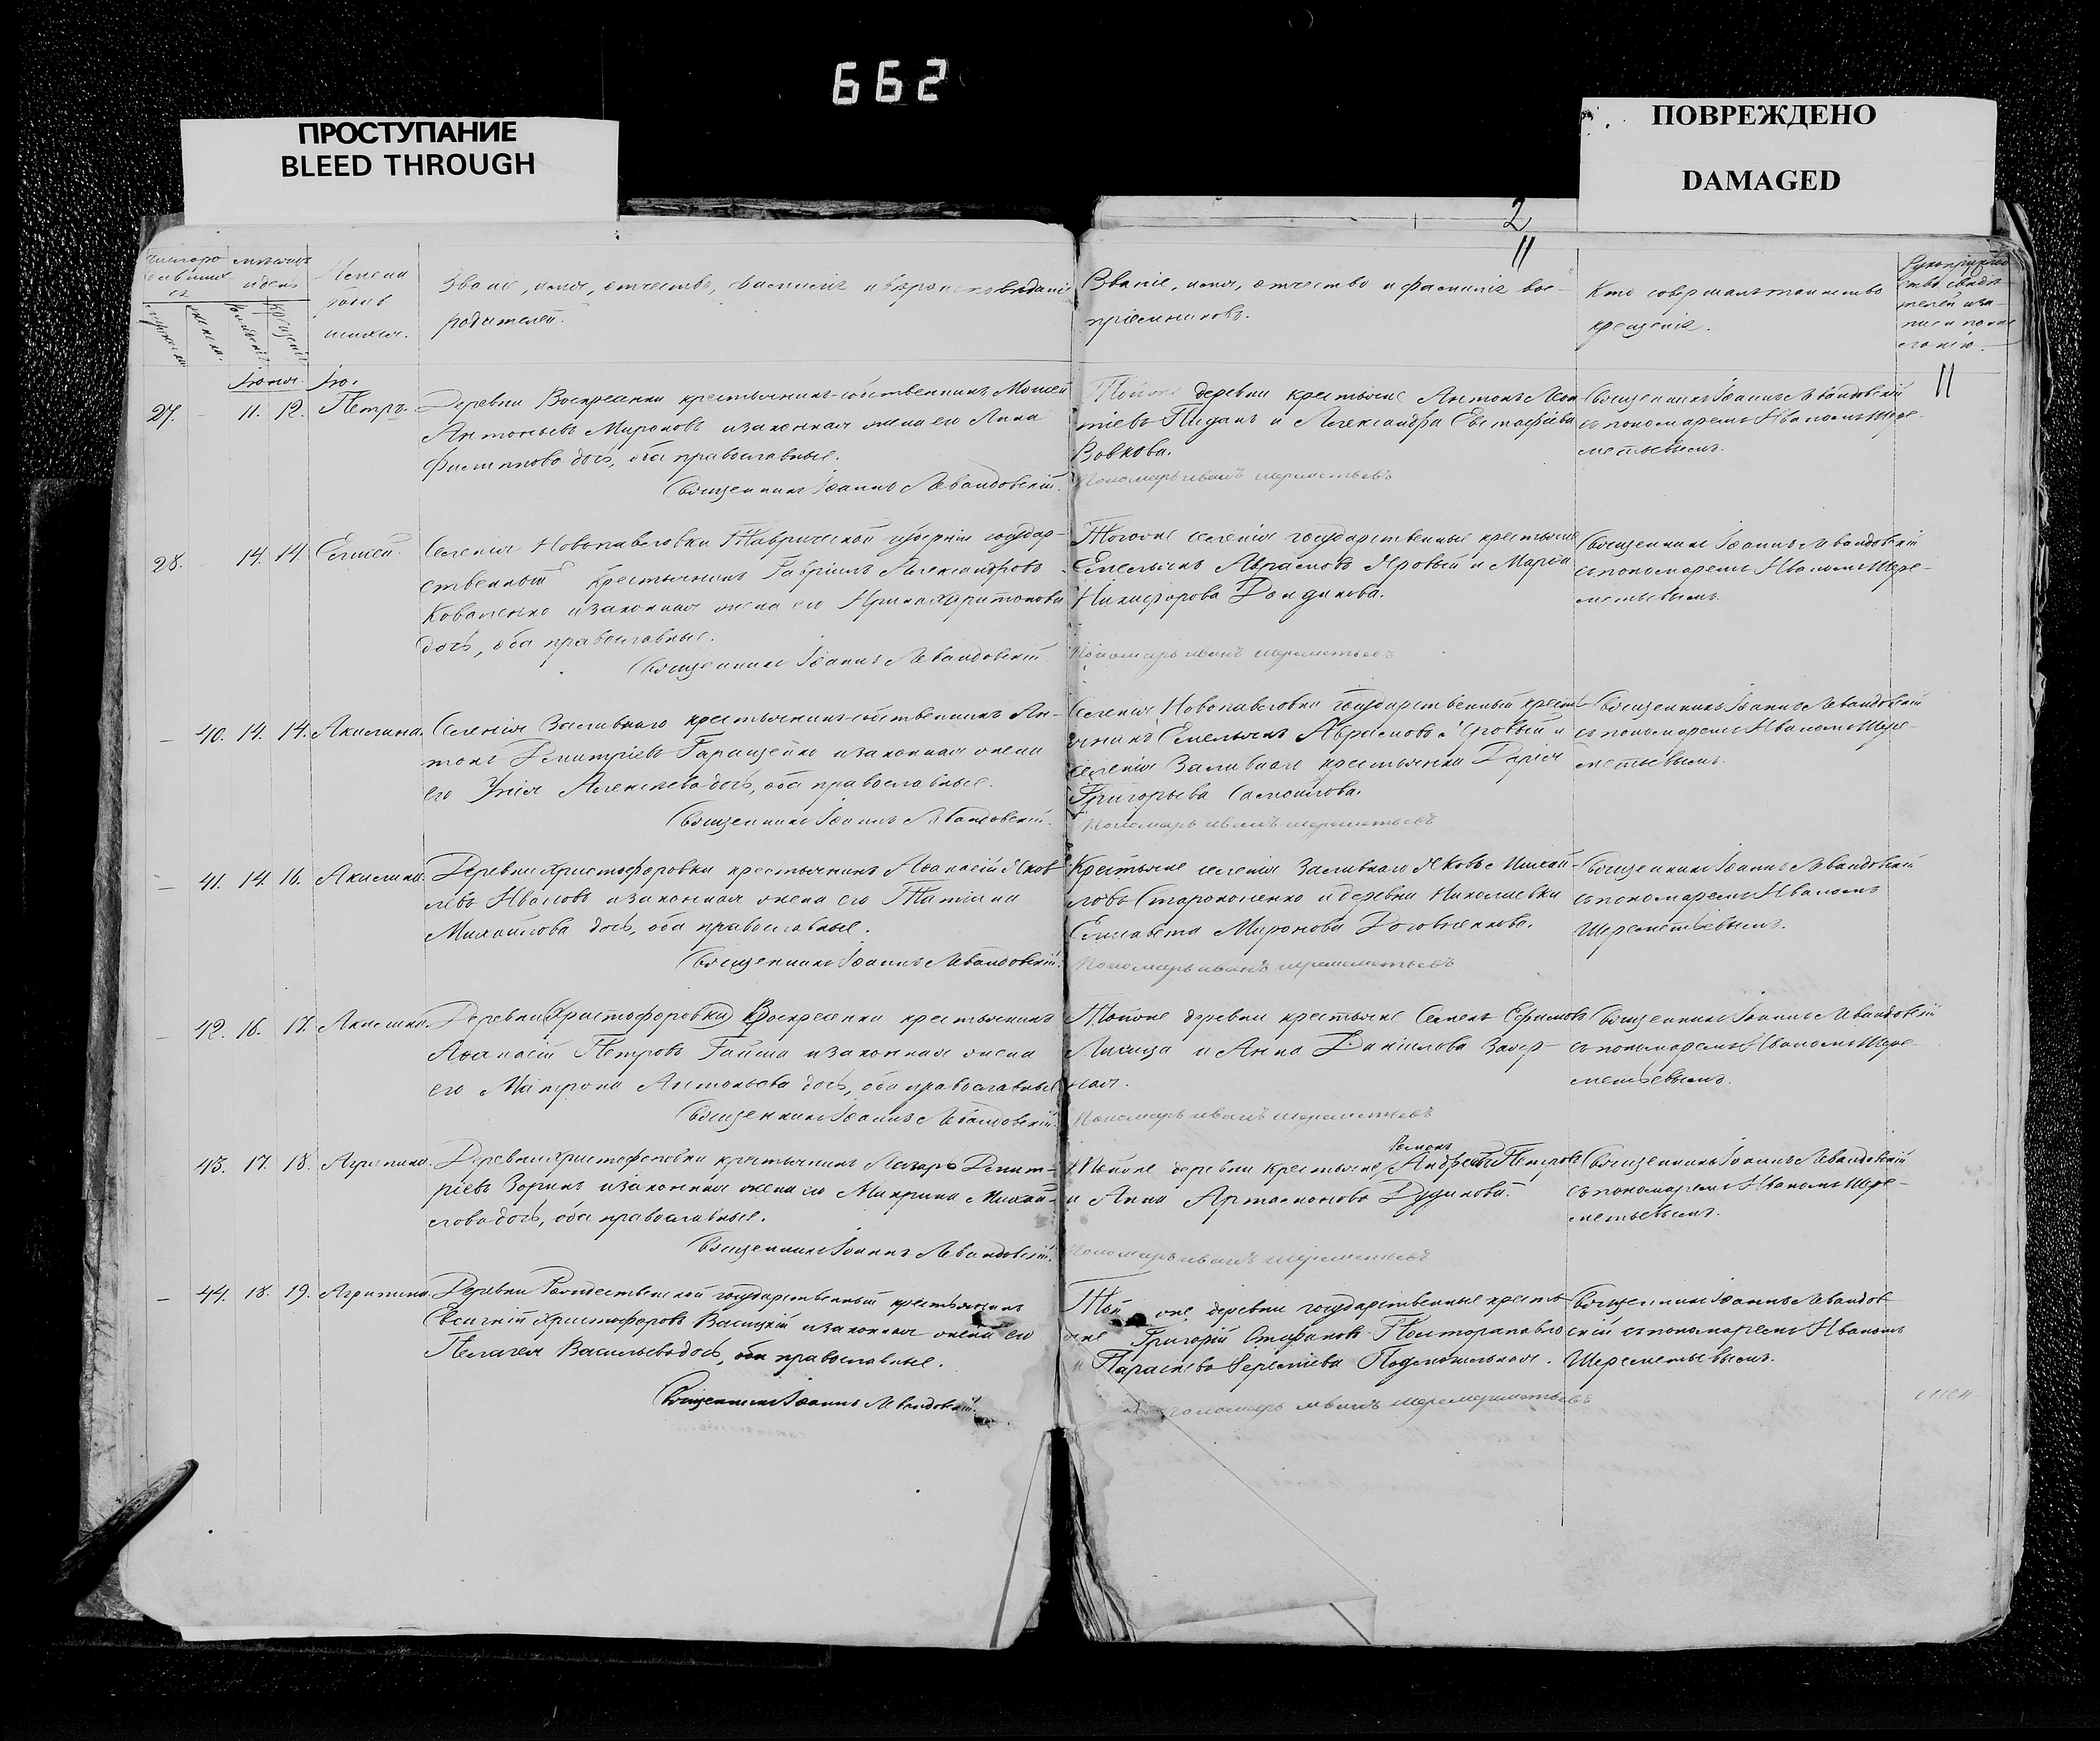 662
ПРОСТУПАНИЕ
BLEED THROUGH
ПОВРЕЖДЕНО
DAMAGED
2
11
Званіе, имя, отчество, фамилія и вѣроисповѣданіе
родителей.
Званіе, имя, отчество и фамилія вос-
пріемниковъ.
Кто совершалъ таинство
крещенія.
11
27. 11. 12. Петръ.
Деревни Воскресенки крестьянинъ-собственникъ Моисей
Антоньевъ Мироновъ и законная жена его Анна
Филиппова дочь, оба православные.
Священникъ Іоаннъ Левандовскій.
деревни крестьяне Антонъ Леон-
тіевъ и Александра Евстафіева
Вовкова.
Пономарь иванъ шереметьевъ
Священникъ Іоаннъ Левандовскій
съ пономаремъ Иваномъ Шере-
метьевымъ.
28. 14. 14. Елисей.
Селенія Новопавловки Таврической губерніи государ-
ственный крестьянинъ Гавріилъ Александровъ
Коваленко и законная жена его Ирина Харитонова
дочь, оба православные.
Священникъ Іоаннъ Левандовскій
Тогоже селенія государственные крестьяне
Емельянъ Абрамовъ Яровый и Марія
Никифорова
Пономарь иванъ шереметьевъ
Священникъ Іоаннъ Левандовскій
съ пономаремъ Иваномъ Шере-
метьевымъ.
40. 14. 14. Акилина.
Селенія Заливнаго крестьянинъ-собственникъ Ан-
тонъ Димитріевъ Гаращенко и законная жена
его Алексѣева дочь, оба православные.
Священникъ Іоаннъ Левандовскій.
Селенія Новопавловки государственный кресть-
янинъ Емельянъ Абрамовъ Яровый и
селенія Заливнаго крестьянка Дарія
Григорьева Самойлова.
Пономарь иванъ шереметьевъ
Священникъ Іоаннъ Левандовскій
съ пономаремъ Иваномъ Шере-
метьевымъ.
41. 14. 16. Акилина.
Деревни Христофоровки крестьянинъ Аѳанасій Яков-
левъ Ивановъ и законная жена его Татіана
Михайлова дочь, оба православные.
Священникъ Іоаннъ Левандовскій.
Крестьяне селенія Заливнаго Яковъ Михай-
ловъ и деревни Николаевки
Елисавета Миронова
Пономарь иванъ шереметьевъ
Священникъ Іоаннъ Левандовскій
съ пономаремъ Иваномъ
Шереметьевымъ.
42. 16. 17. Акилина.
Деревни (Христофоровки) Воскресенки крестьянинъ
Аѳанасій Петровъ и законная жена
его Матрона Антоньева дочь, оба православные
Священникъ Іоаннъ Левандовскій.
Тойже деревни крестьяне Семенъ Ефимовъ
и Анна Даніилова
Пономарь иванъ шереметьевъ
Священникъ Іоаннъ Левандовскій
съ пономаремъ Иваномъ Шере-
метьевымъ.
43. 17. 18. Агрипина.
Деревни Христофоровки крестьянинъ Лазарь Димит-
ріевъ Зоринъ и законная жена его Макрина Михай-
лова дочь, оба православные.
Священникъ Іоаннъ Левандовскій.
Тойже деревни крестьяне Андрей Петровъ
и Анна Артамонова Дудикова.
Пономарь иванъ шереметьевъ
Священникъ Іоаннъ Левандовскій
съ пономаремъ Иваномъ Шере-
метьевымъ.
44. 18. 19. Агрипина.
Деревни Рождественской государственный крестьянинъ
Христофоровъ и законная жена его
Пелагея Васильева дочь, оба православные.
Священникъ Іоаннъ Левандовскій.
Той же деревни государственные кресть-
яне Григорій Стефановъ
и Параскева
Пономарь иванъ
Священникъ Іоаннъ Левандов-
скій съ пономаремъ Иваномъ
Шереметьевымъ.